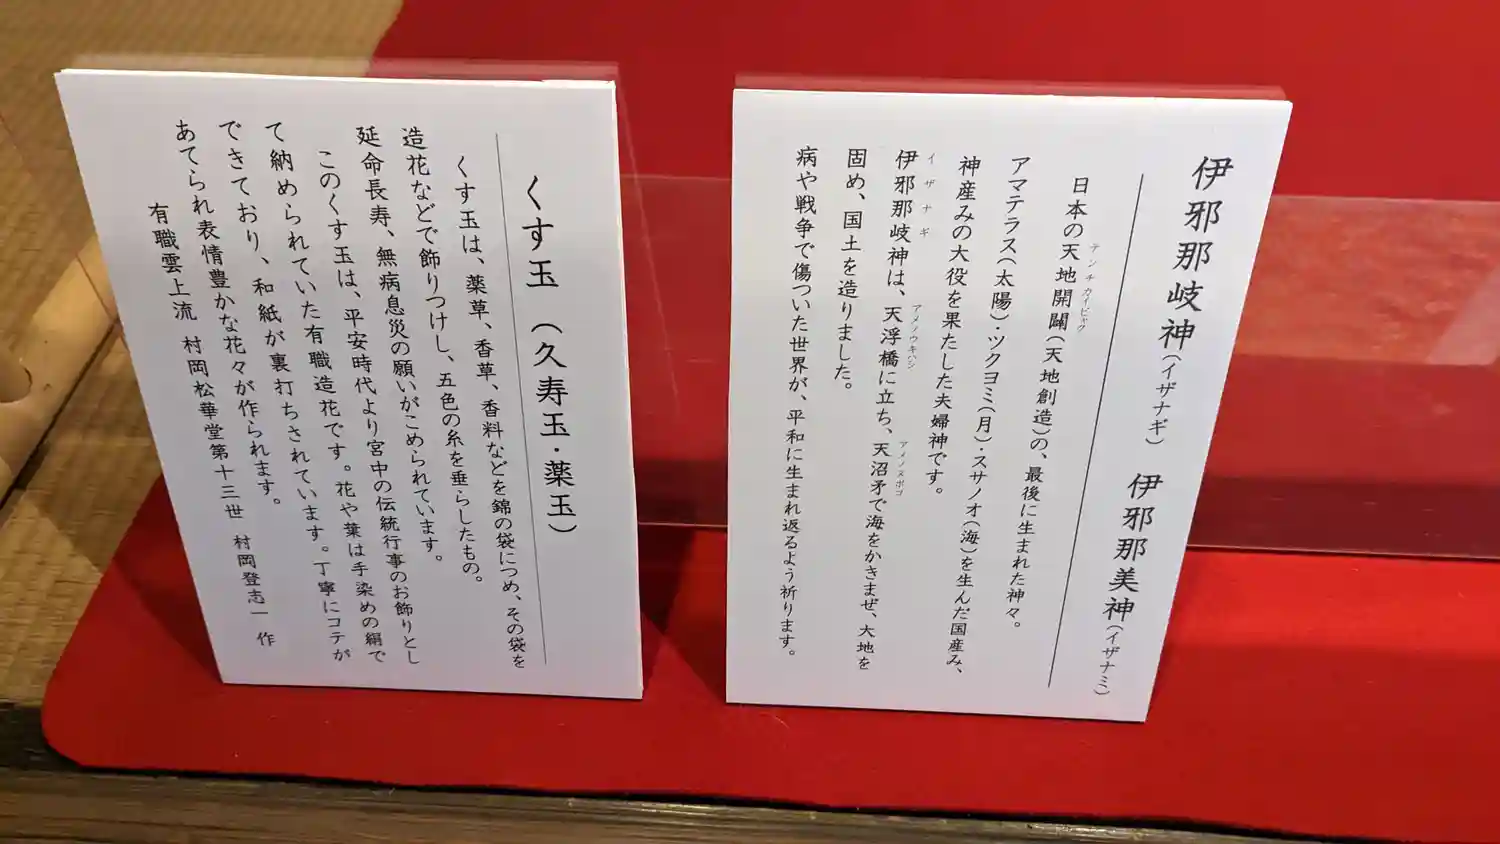 伊邪那岐神（イザナギ）　伊邪那美神（イザナミ）
日本の天地開闢（天地創造）の、最後に生まれた神々。
テンチカイビャク
アマテラス（太陽）・ツクヨミ（月）・スサノオ（海）を生んだ国産み、
神産みの大役を果たした夫婦神です。
伊邪那岐神は、天浮橋に立ち、天沼矛で海をかきまぜ、大地を
イザナギ
アメノウキハシ
アメノヌボコ
固め、国土を造りました。
病や戦争で傷ついた世界が、平和に生まれ返るよう祈ります。
くす玉（久寿玉・薬玉）
くす玉は、薬草、香草、香料などを錦の袋につめ、その袋を
造花などで飾りつけし、五色の糸を垂らしたもの。
延命長寿、無病息災の願いがこめられています。
このくす玉は、平安時代より宮中の伝統行事のお飾りとし
て納められていた有職造花です。花や葉は手染めの絹で
できており、和紙が裏打ちされています。丁寧にコテが
あてられ表情豊かな花々が作られます。
有職雲上流　村岡松華堂第十三世　村岡登志一　作